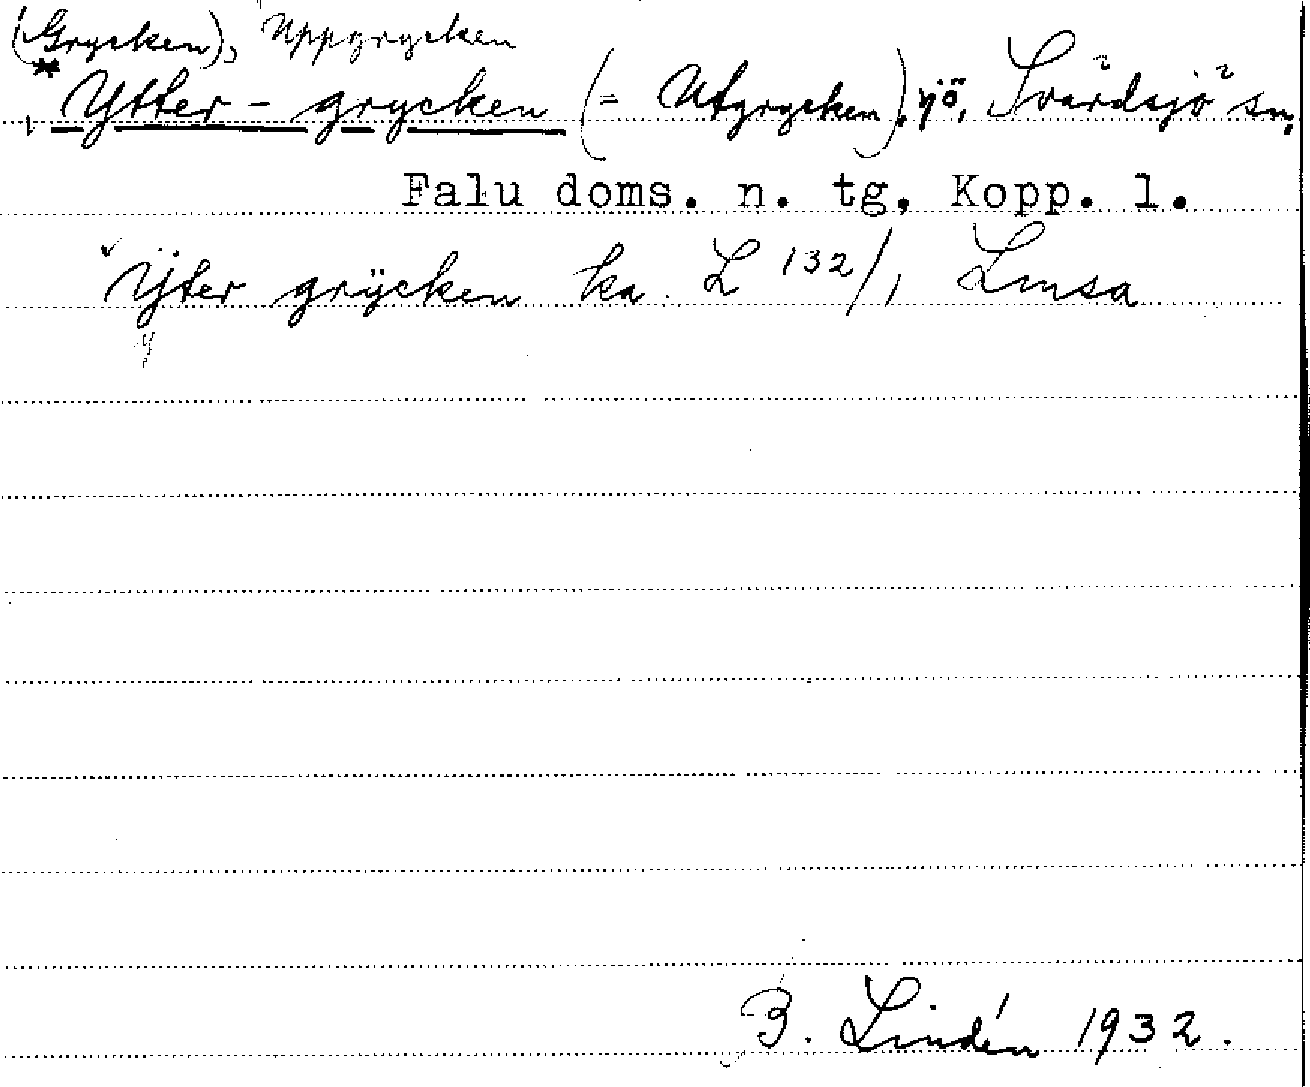 (Grycken), Uppgrycken
* Ytter-grycken (= Utgrycken), sjö, Svärdsjö sn,
Falu doms. n. tg, Kopp. l.
Ÿter grÿcken ka. L 132/1 Lmsa
y
B. Lindén 1932.